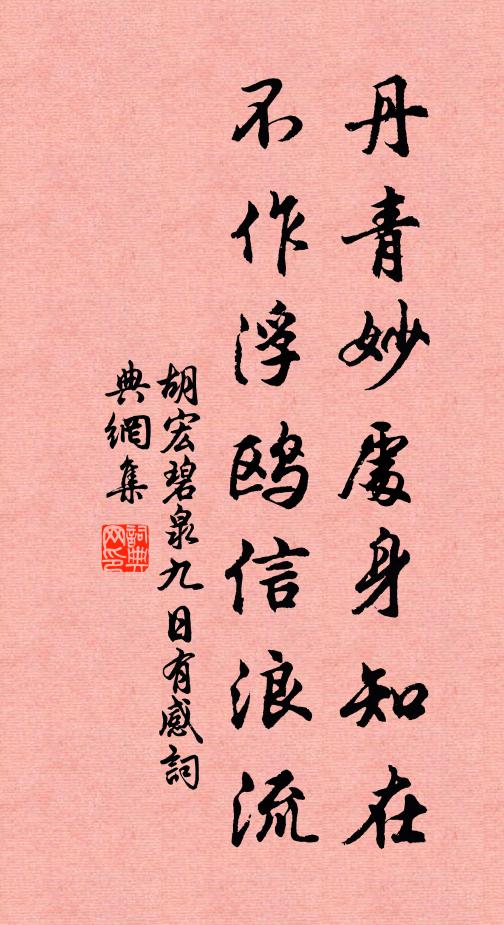 丹青妙處身知在
不作浮鸥信浪流
胡宏碧泉九日有感詞
典網集
詞典
网印